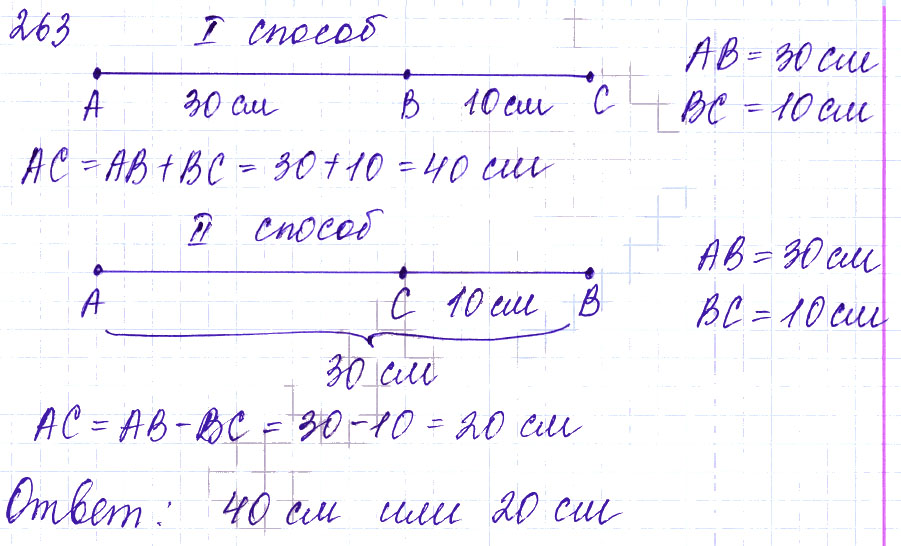 263 I способ
AB = 30 см
A 30 см B 10 см C
BC = 10 см
AC = AB + BC = 30 + 10 = 40 см
II способ
AB = 30 см
A C 10 см B
BC = 10 см
30 см
AC = AB - BC = 30 - 10 = 20 см
Ответ: 40 см или 20 см